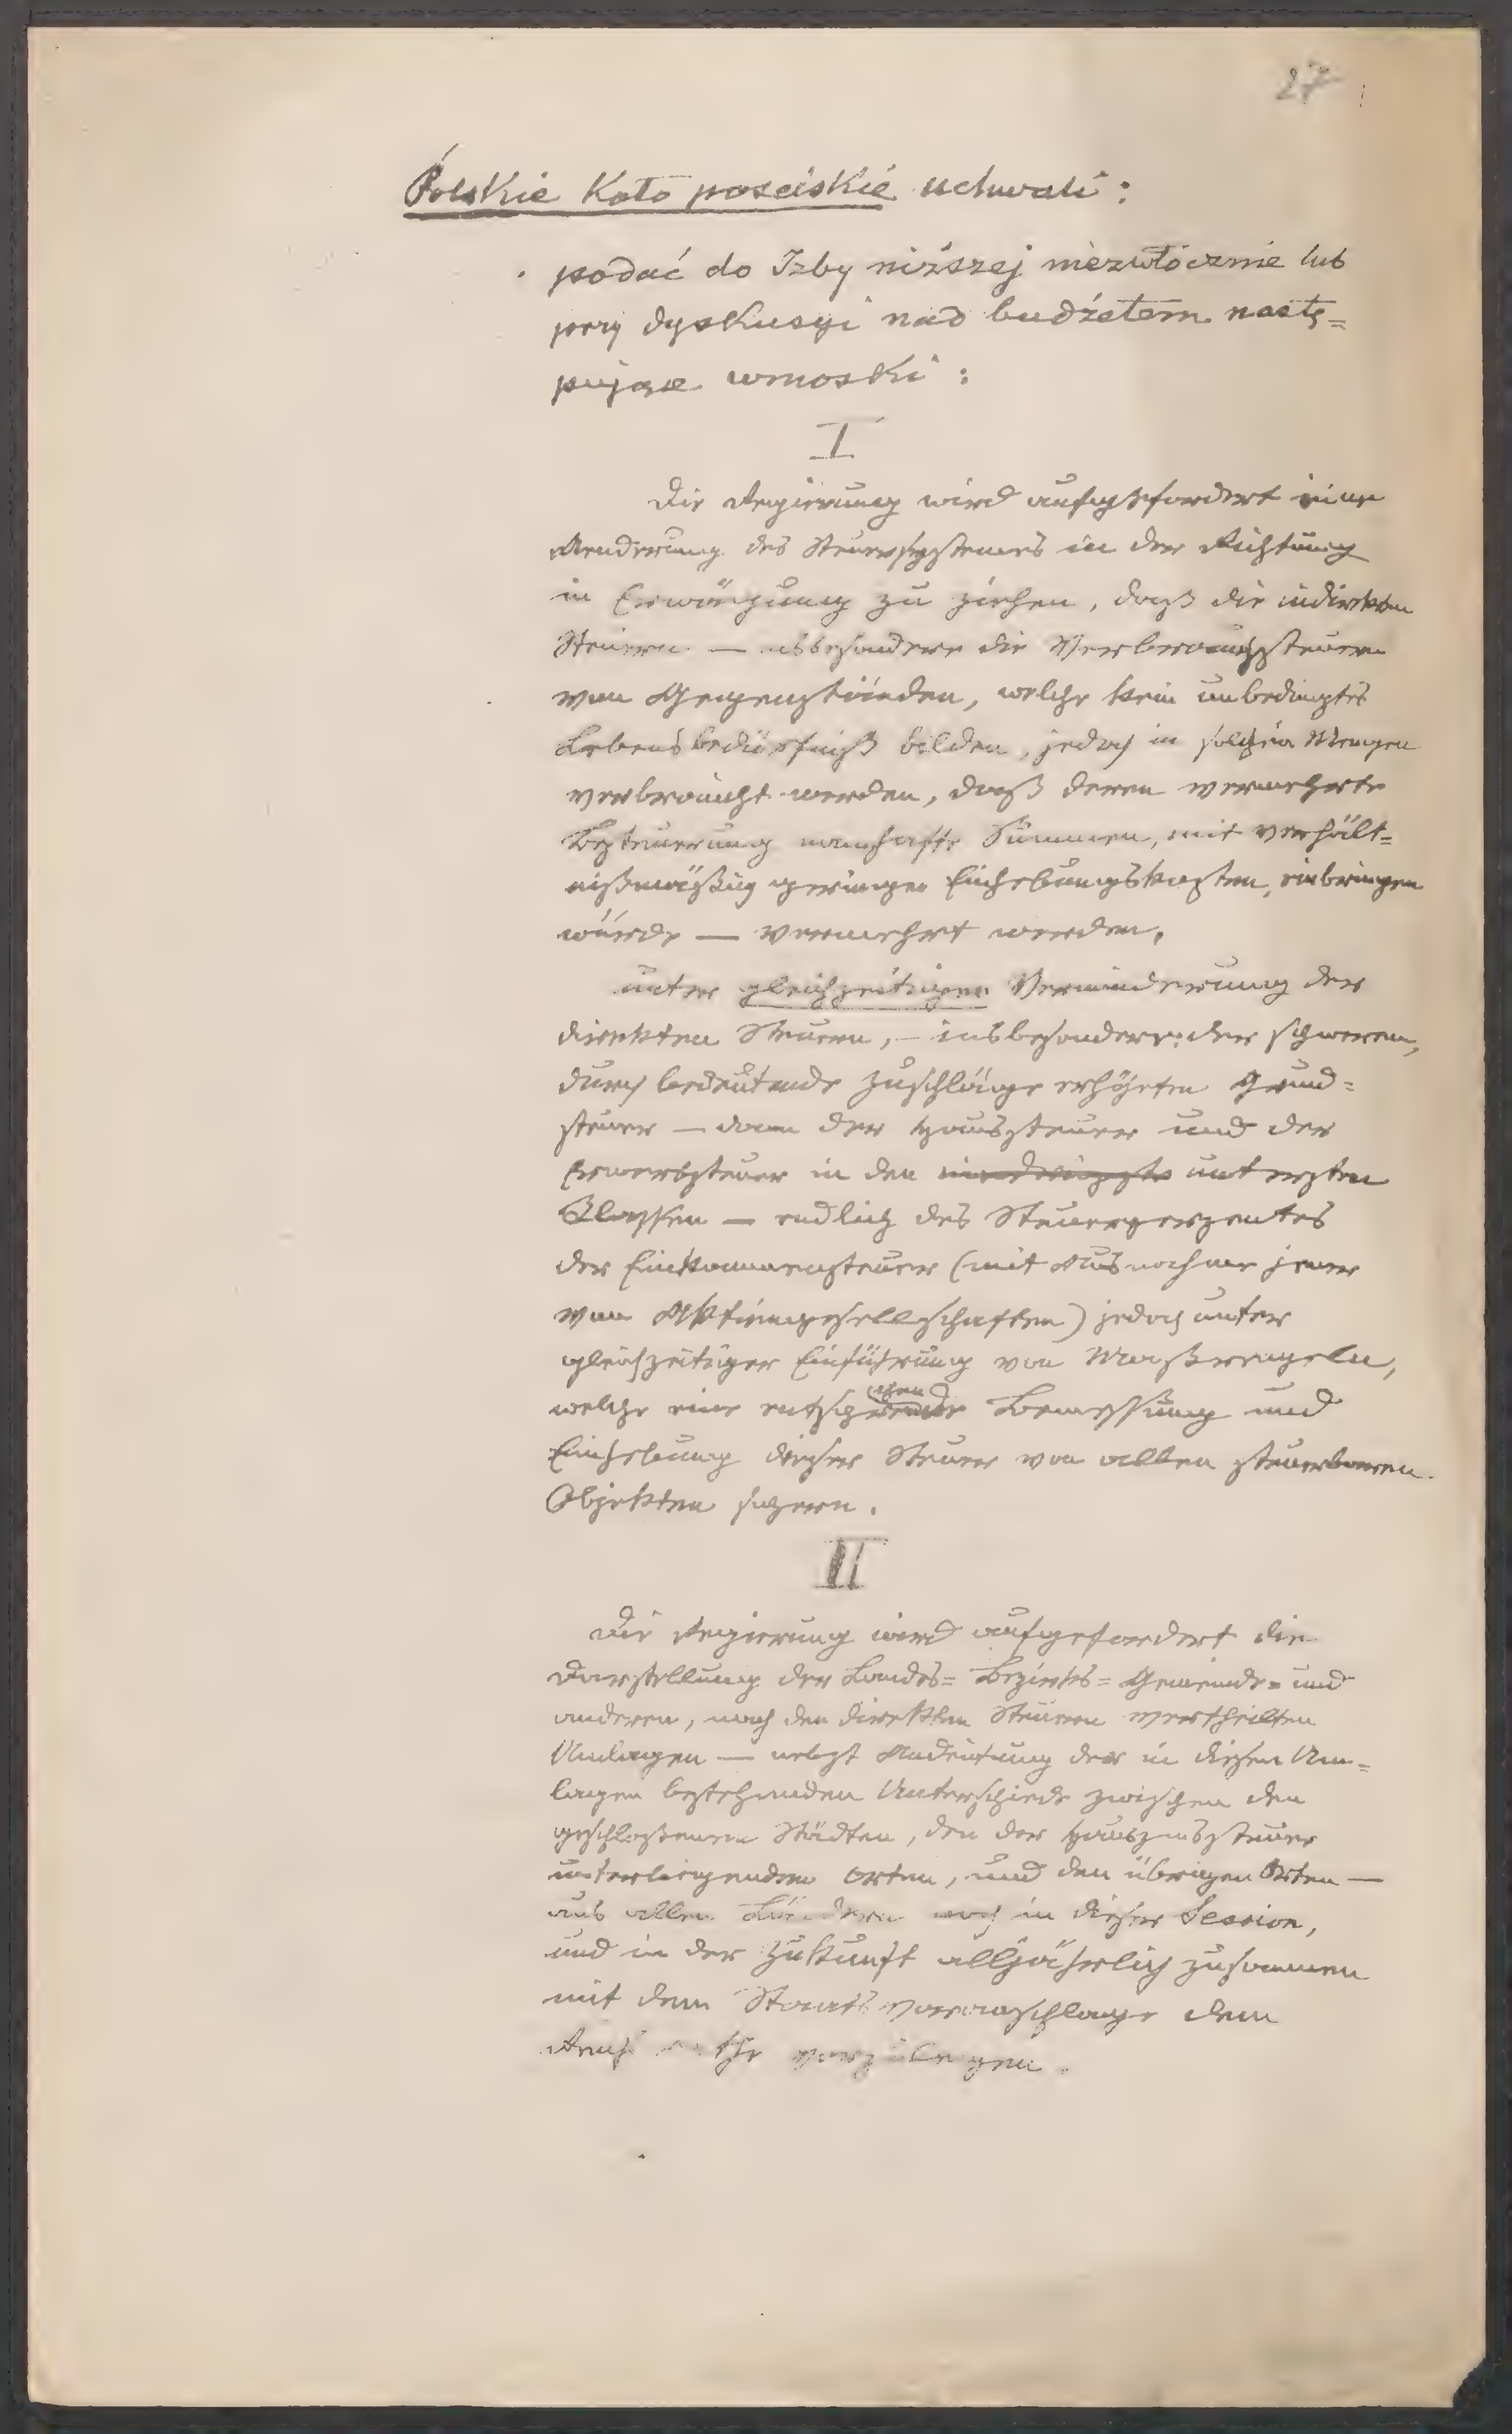 27
Polskie Koło poselskie uchwali:
podać do Izby niższej niezwłocznie lub
przy dyskusyi nad budżetem nastę=
pujące wnioski:
I
Die Regierung wird aufgefordert eine
Aenderung des Steuersystemes in der Richtung
in Erwägung zu ziehen, daß die indirekten
Steuern — insbesondere die Verbrauchssteuern
von Gegenständen, welche kein unbedingtes
Lebensbedürfniß bilden, jedoch in solchen Mengen
verbraucht werden, daß deren vermehrte
Besteuerung namhafte Summen, mit verhält=
nißmäßig geringen Einhebungskosten, einbringen
würde — vermehrt werden,
unter gleichzeitigen Verminderung der
direkten Steuern, – insbesondere: der schweren,
durch bedeutende Zuschläge erhöhten Grund=
steuer — dann der Haussteuer und der
Erwerbsteuer in den untersten
Classen — endlich des Steuerperzentes
der Einkommensteuer (mit Ausnahme jener
von Aktiengesellschaften) jedoch unter
gleichzeitiger Einführung von Maßregeln,
welche eine entsprechende Bemessung und
Einhebung dieser Steuer von allen steuerbaren
Objekten sichern.
II
Die Regierung wird aufgefordert die
Darstellung der Landes= Bezirks= Gemeinde= und
anderen, nach den direkten Steuern vertheilten
Umlagen — nebst Andeutung der in diesen Um=
lagen bestehenden Unterschiede zwischen den
geschloßenen Städten, den der Hauszinssteuer
unterliegenden Orten, und den übrigen Orten —
aus allen Ländern noch in dieser Session,
und in der Zukunft alljährlich zusammen
mit dem Staatsvoranschlage dem
Reichsrathe vorzulegen.